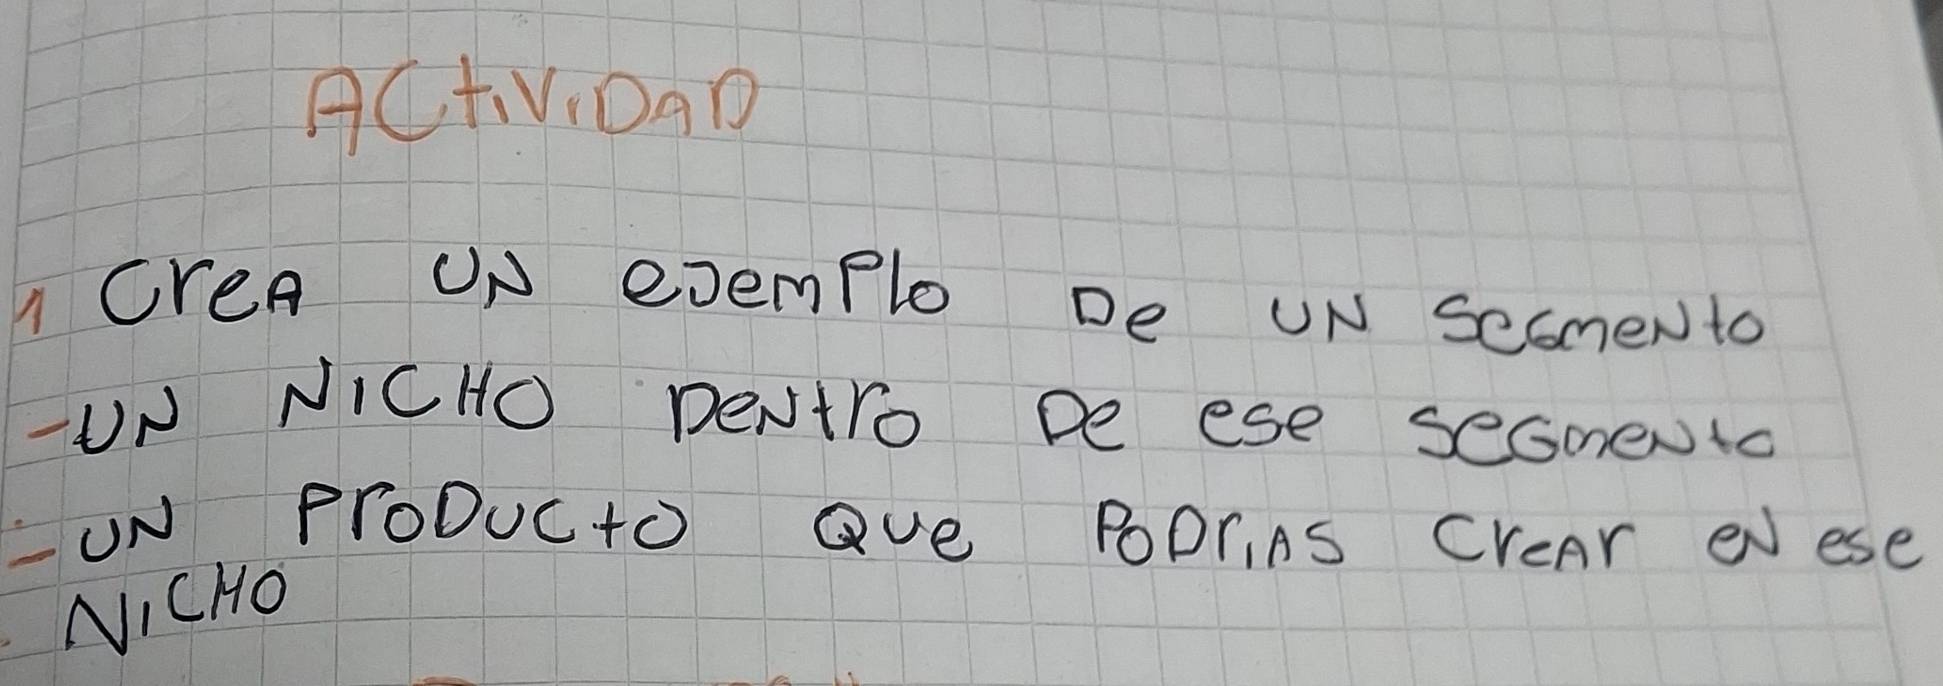 ACtiViDaD
1 CreA UN eJemPlo De UN SeGmeNto
-UN NICHO DeNtro De ese seGmeNto
-UN ProDUCtO QUe PoDriAS CreAr eN ese
NiCHO